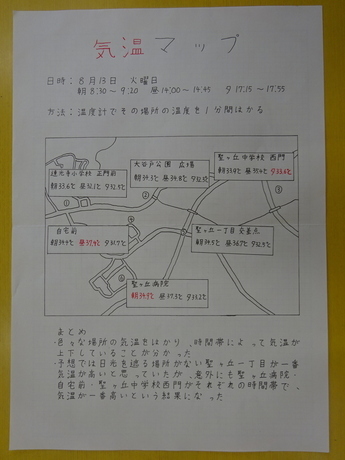 気温マップ
日時：8月13日 火曜日
朝 8:30～9:20 昼 14:00～14:45 夕 17:15～17:55
方法：温度計でその場所の温度を1分間はかる
小学校 正門前
朝33.6℃ 昼
大谷戸公園 広場
朝34.3℃ 昼34.8℃ 夕32.5℃
聖ヶ丘中学校 西門
朝33.9℃ 昼35.4℃ 夕33.6℃
②
③
自宅前
朝34.4℃ 昼37.9℃
④
聖ヶ丘一丁目 交差点
朝34.5℃ 昼36.7℃ 夕32.5℃
聖ヶ丘病院
朝34.9℃ 昼37.3℃ 夕33.2℃
まとめ
・色々な場所の気温をはかり、時間帯によって気温が
上下していることが分かった
・予想では日光を遮る場所がない聖ヶ丘一丁目が一番
気温が高いと思っていたが、意外にも聖ヶ丘病院・
自宅前・聖ヶ丘中学校西門がそれぞれの時間帯で、
気温が一番高いという結果になった